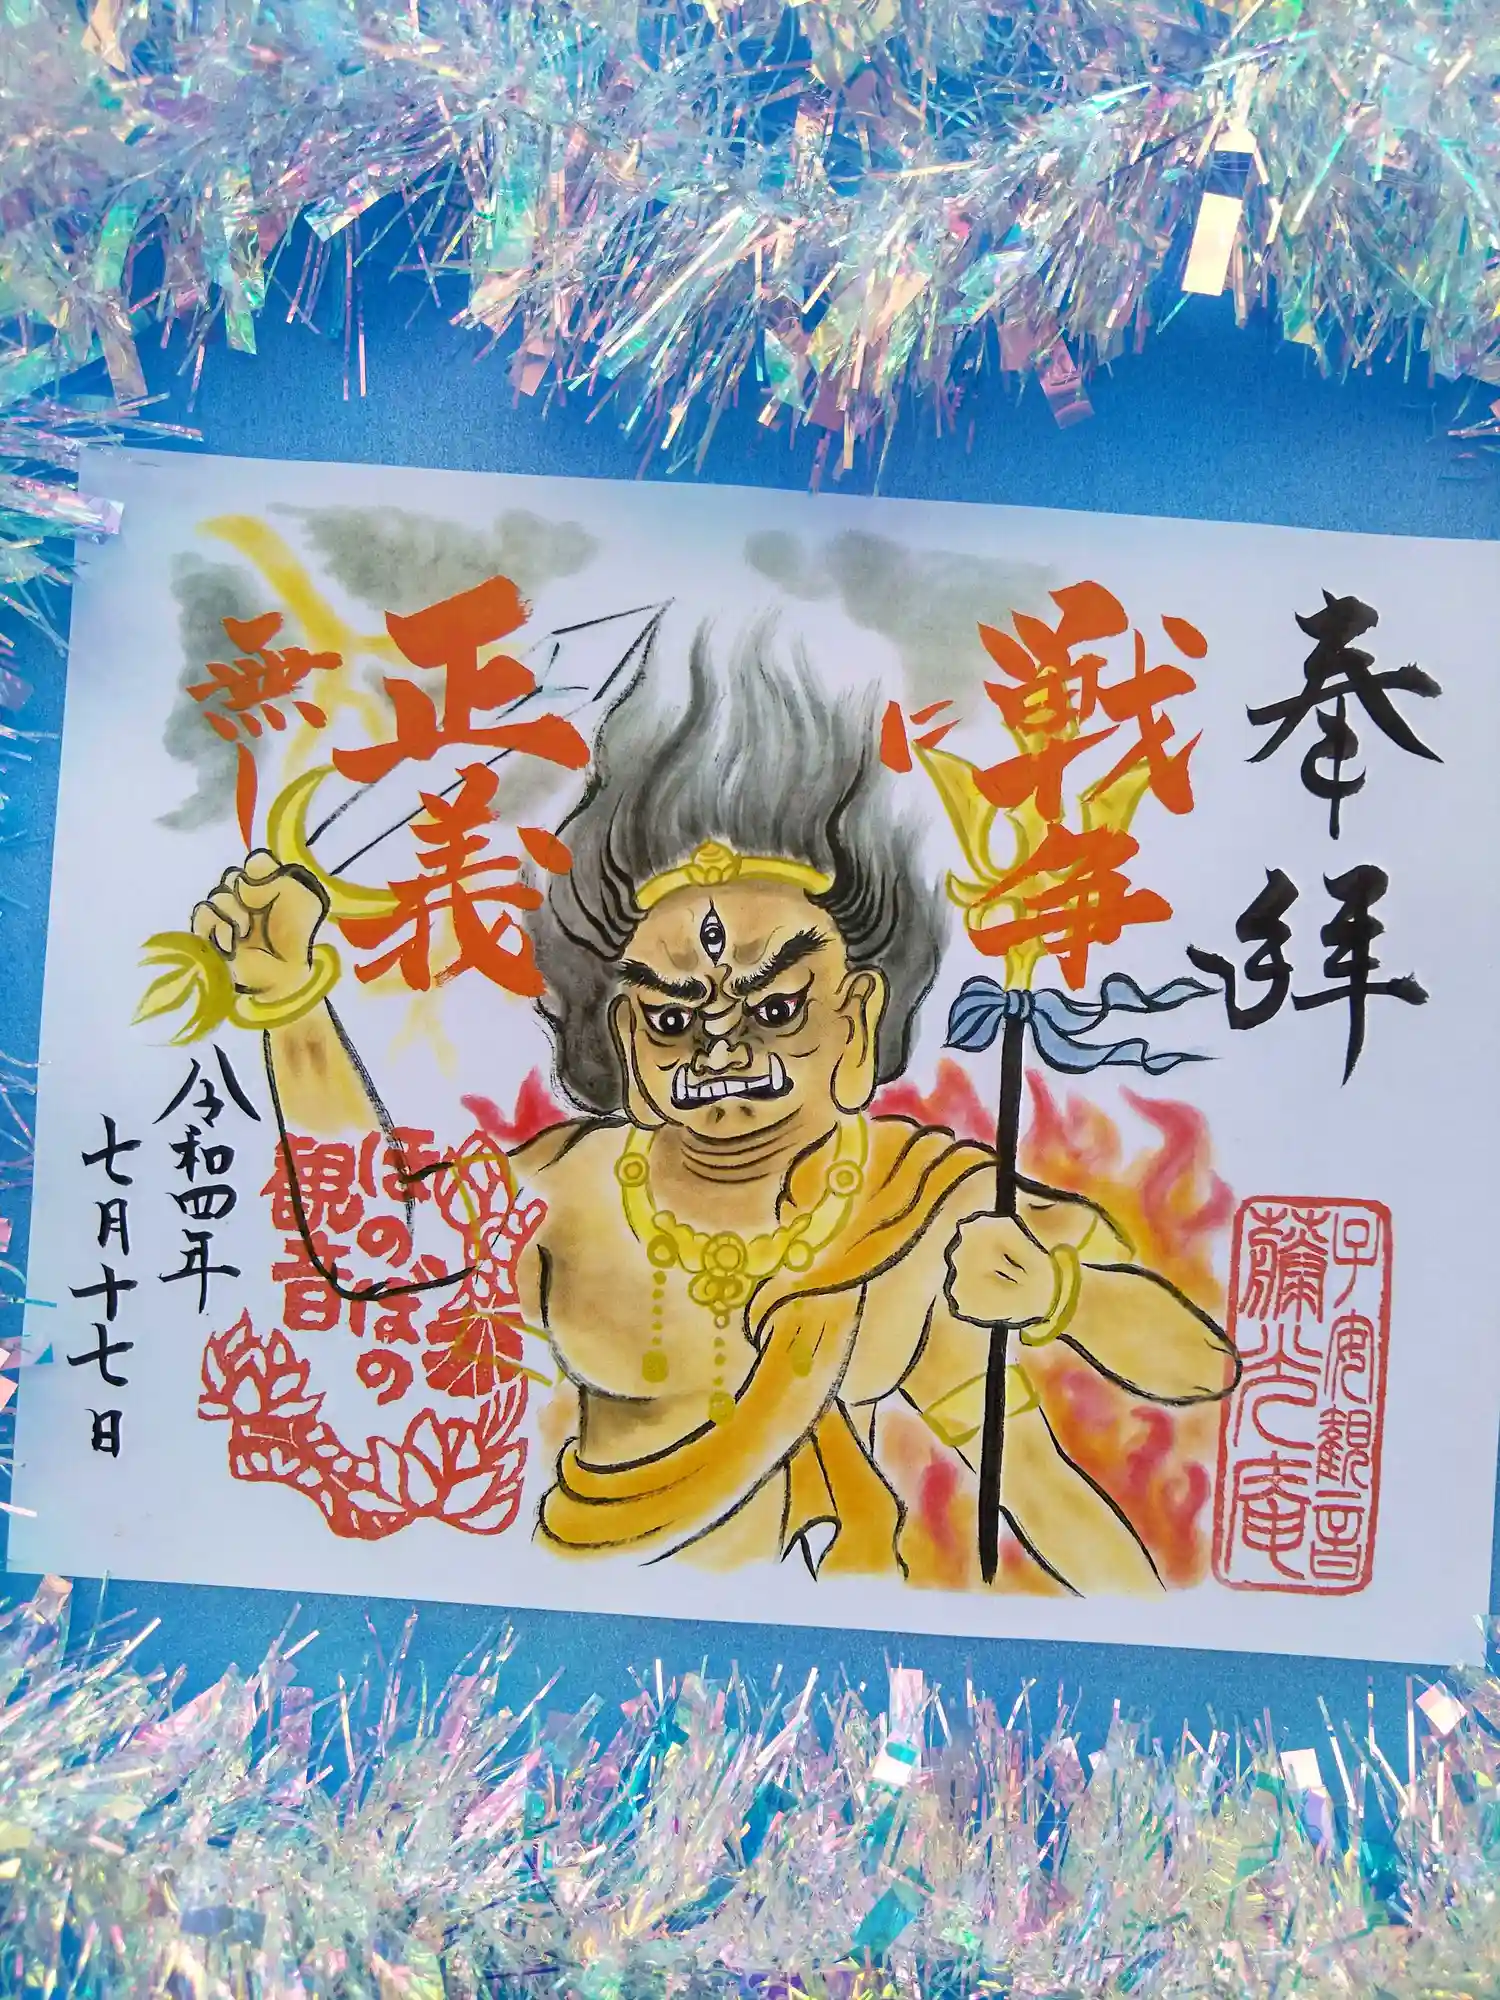 奉拝
戦争に
正義
無し
令和四年
七月十七日
ほのぼの
観音
子安観音
藤光庵